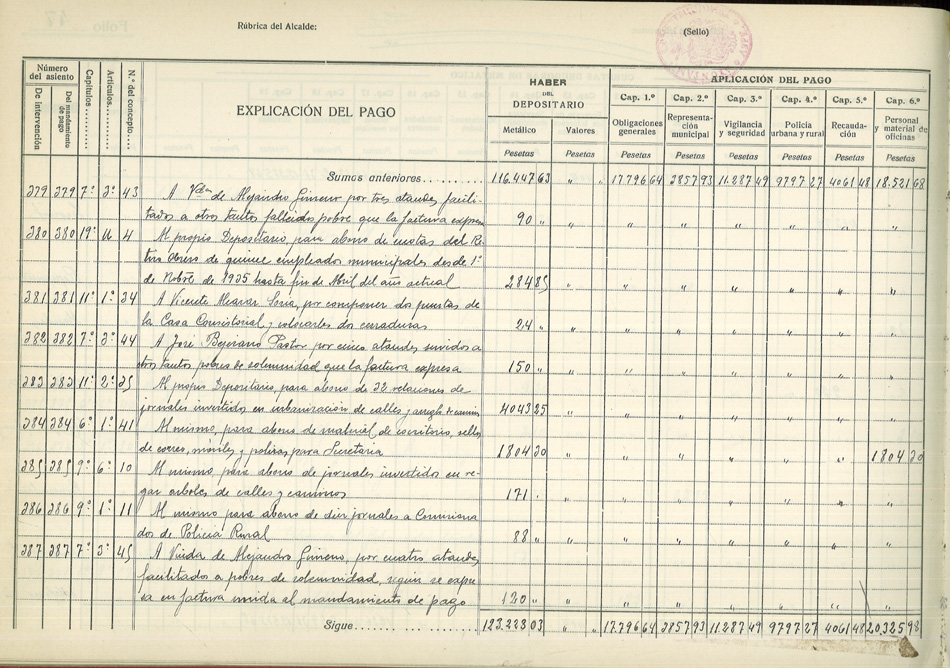 Folio 18
Rúbrica del Alcalde:
(Sello)
Número del asiento
De intervención
Del mandamiento de pago
Capítulos
Artículos
N.º del concepto
EXPLICACIÓN DEL PAGO
HABER DEL DEPOSITARIO
Metálico Valores
Pesetas Pesetas
APLICACIÓN DEL PAGO
Cap. 1.º Cap. 2.º Cap. 3.º Cap. 4.º Cap. 5.º Cap. 6.º
Obligaciones generales Representación municipal Vigilancia y seguridad Policía urbana y rural Recaudación Personal y material de oficinas
Pesetas Pesetas Pesetas Pesetas Pesetas Pesetas
Sumas anteriores 116.447 63 " " 17.796 64 3857 93 11.287 49 9797 27 4061 48 18.521 68
379 379 7º 3º 43 A Vda de Alejandro Gimeno por tres ataudes facili-
tados a otros tantos fallecidos pobre, que la factura expresa 90 " " " " " " " "
380 380 19º U 4 Al propio Depositario, para abono de cuotas del Re-
tiro Obrero de quince empleados municipales desde 1º
de Nobre de 1935 hasta fin de Abril del año actual 284 85 " " " " " " "
381 381 11º 1º 34 A Vicente Alcaraz Soria, por componer dos puertas de
la Casa Consistorial y colocarles dos cerraduras 24 " " " " " " " "
382 382 7º 3º 44 A José Bejerano Pastor por cinco ataudes servidos a
otros tantos pobres de solemnidad que la factura expresa 150 " " " " " " " "
383 383 11º 2º 35 Al propio Depositario, para abono de 32 relaciones de
jornales invertidos en urbanización de calles y arreglo de caminos 4043 25 " " " " " " "
384 384 6º 1º 41 Al mismo, para abono de material de escritorio, sellos
de correo, móviles y polizas, para Secretaria 1804 30 " " " " " " 1804 30
385 385 9º 6º 10 Al mismo, para abono de jornales invertidos en re-
gar arboles de calles y caminos 171 " " " " " " " "
386 386 9º 1º 11 Al mismo para abono de diez jornales a Comisiona-
dos de Policia Rural 88 " " " " " " " "
387 387 7º 3º 45 A Viuda de Alejandro Gimeno, por cuatro ataudes
facilitados a pobres de solemnidad, según se expre-
sa en factura unida al mandamiento de pago 120 " " " " " " " "
Sigue 123.223 03 " " 17.796 64 3857 93 11.287 49 9797 27 4061 48 20.325 98